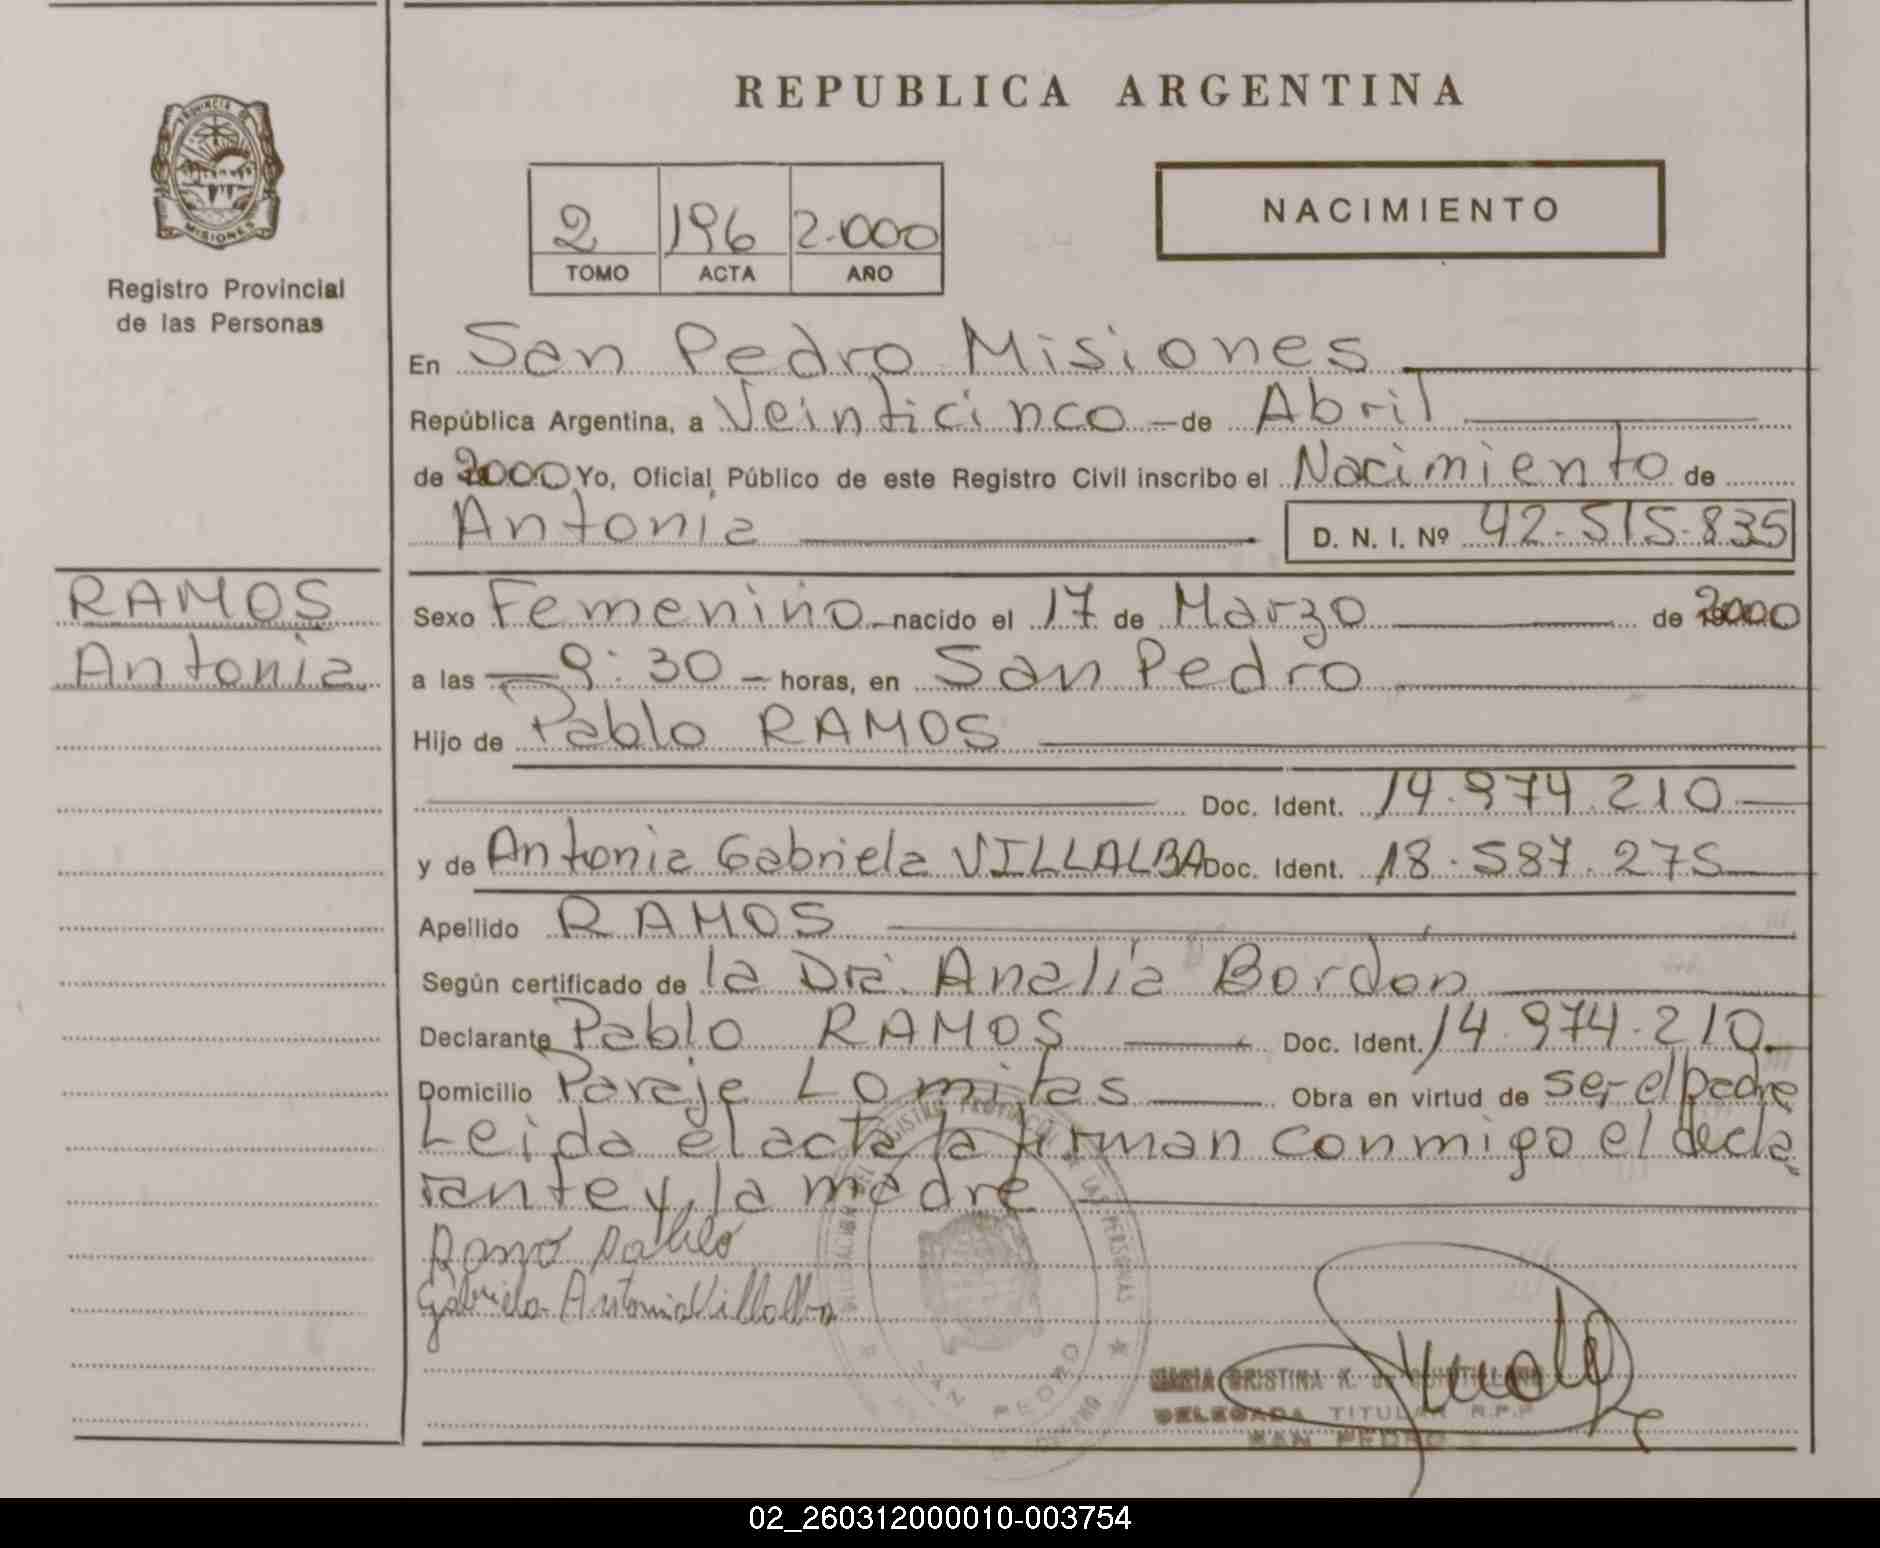 REPUBLICA ARGENTINA
PROVINCIA DE
MISIONES
Registro Provincial
de las Personas
2 196 2.000
TOMO ACTA AÑO
NACIMIENTO
En San Pedro Misiones
República Argentina, a Veinticinco de Abril
de 2000 Yo, Oficial Público de este Registro Civil inscribo el Nacimiento de
Antonia
D. N. I. Nº 42.515.835
RAMOS
Antonia
Sexo Femenino nacido el 17 de Marzo de 2000
a las 9:30 horas, en San Pedro
Hijo de Pablo RAMOS
Doc. Ident. 14.974.210
y de Antonia Gabriela VILLALBA Doc. Ident. 18.587.275
Apellido RAMOS
Según certificado de la Dra. Analía Bordón
Declarante Pablo RAMOS Doc. Ident. 14.974.210
Domicilio Paraje Lomitas Obra en virtud de ser el padre
Leida el acta la firman conmigo el decla
rante y la madre
Ramos Pablo
Gabriela Antonia Villalba
REGISTRO PROVINCIAL DE LAS PERSONAS
SAN PEDRO
MARIA CRISTINA K. de QUINTILLANO
DELEGADA TITULAR R.P.P
SAN PEDRO
02_260312000010-003754